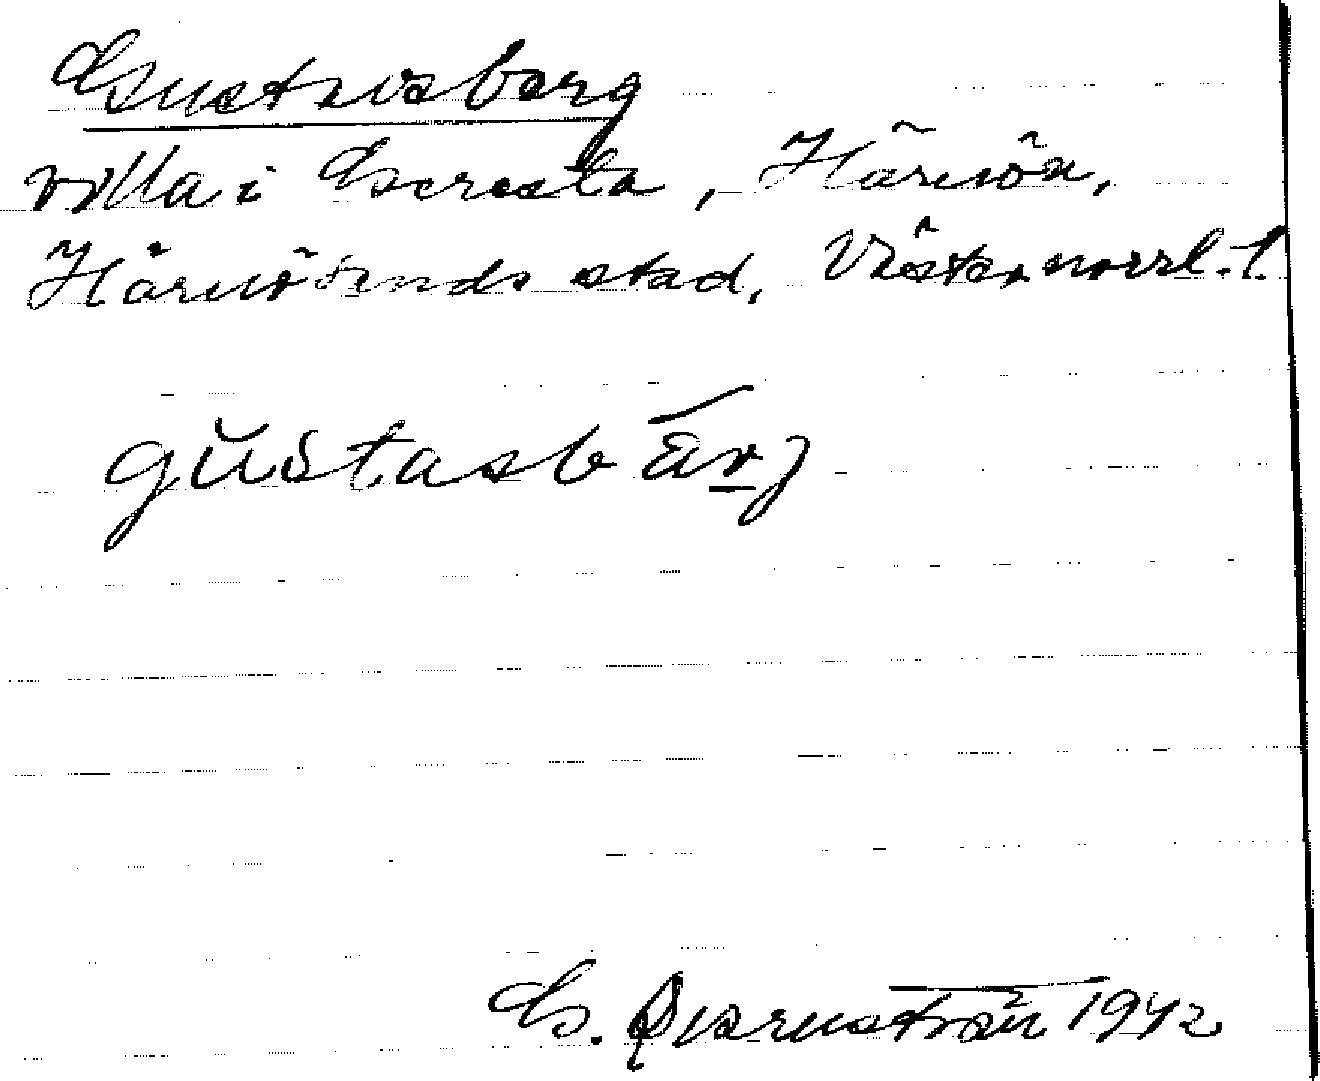 Gustavsberg
villa i Geresta, Härnön,
Härnösands stad, Västernorrl. l.
gŭstasbärj
G. Qvarnström 1942